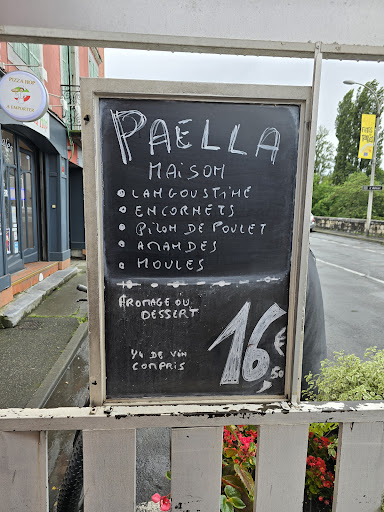 PIZZA HOP
A EMPORTER
PAËLLA
MAISON
• LANGOUSTINE
• ENCORNETS
• PILON DE POULET
• AMANDES
• MOULES
FROMAGE OU
DESSERT
1/4 DE VIN
COMPRIS
16€,50